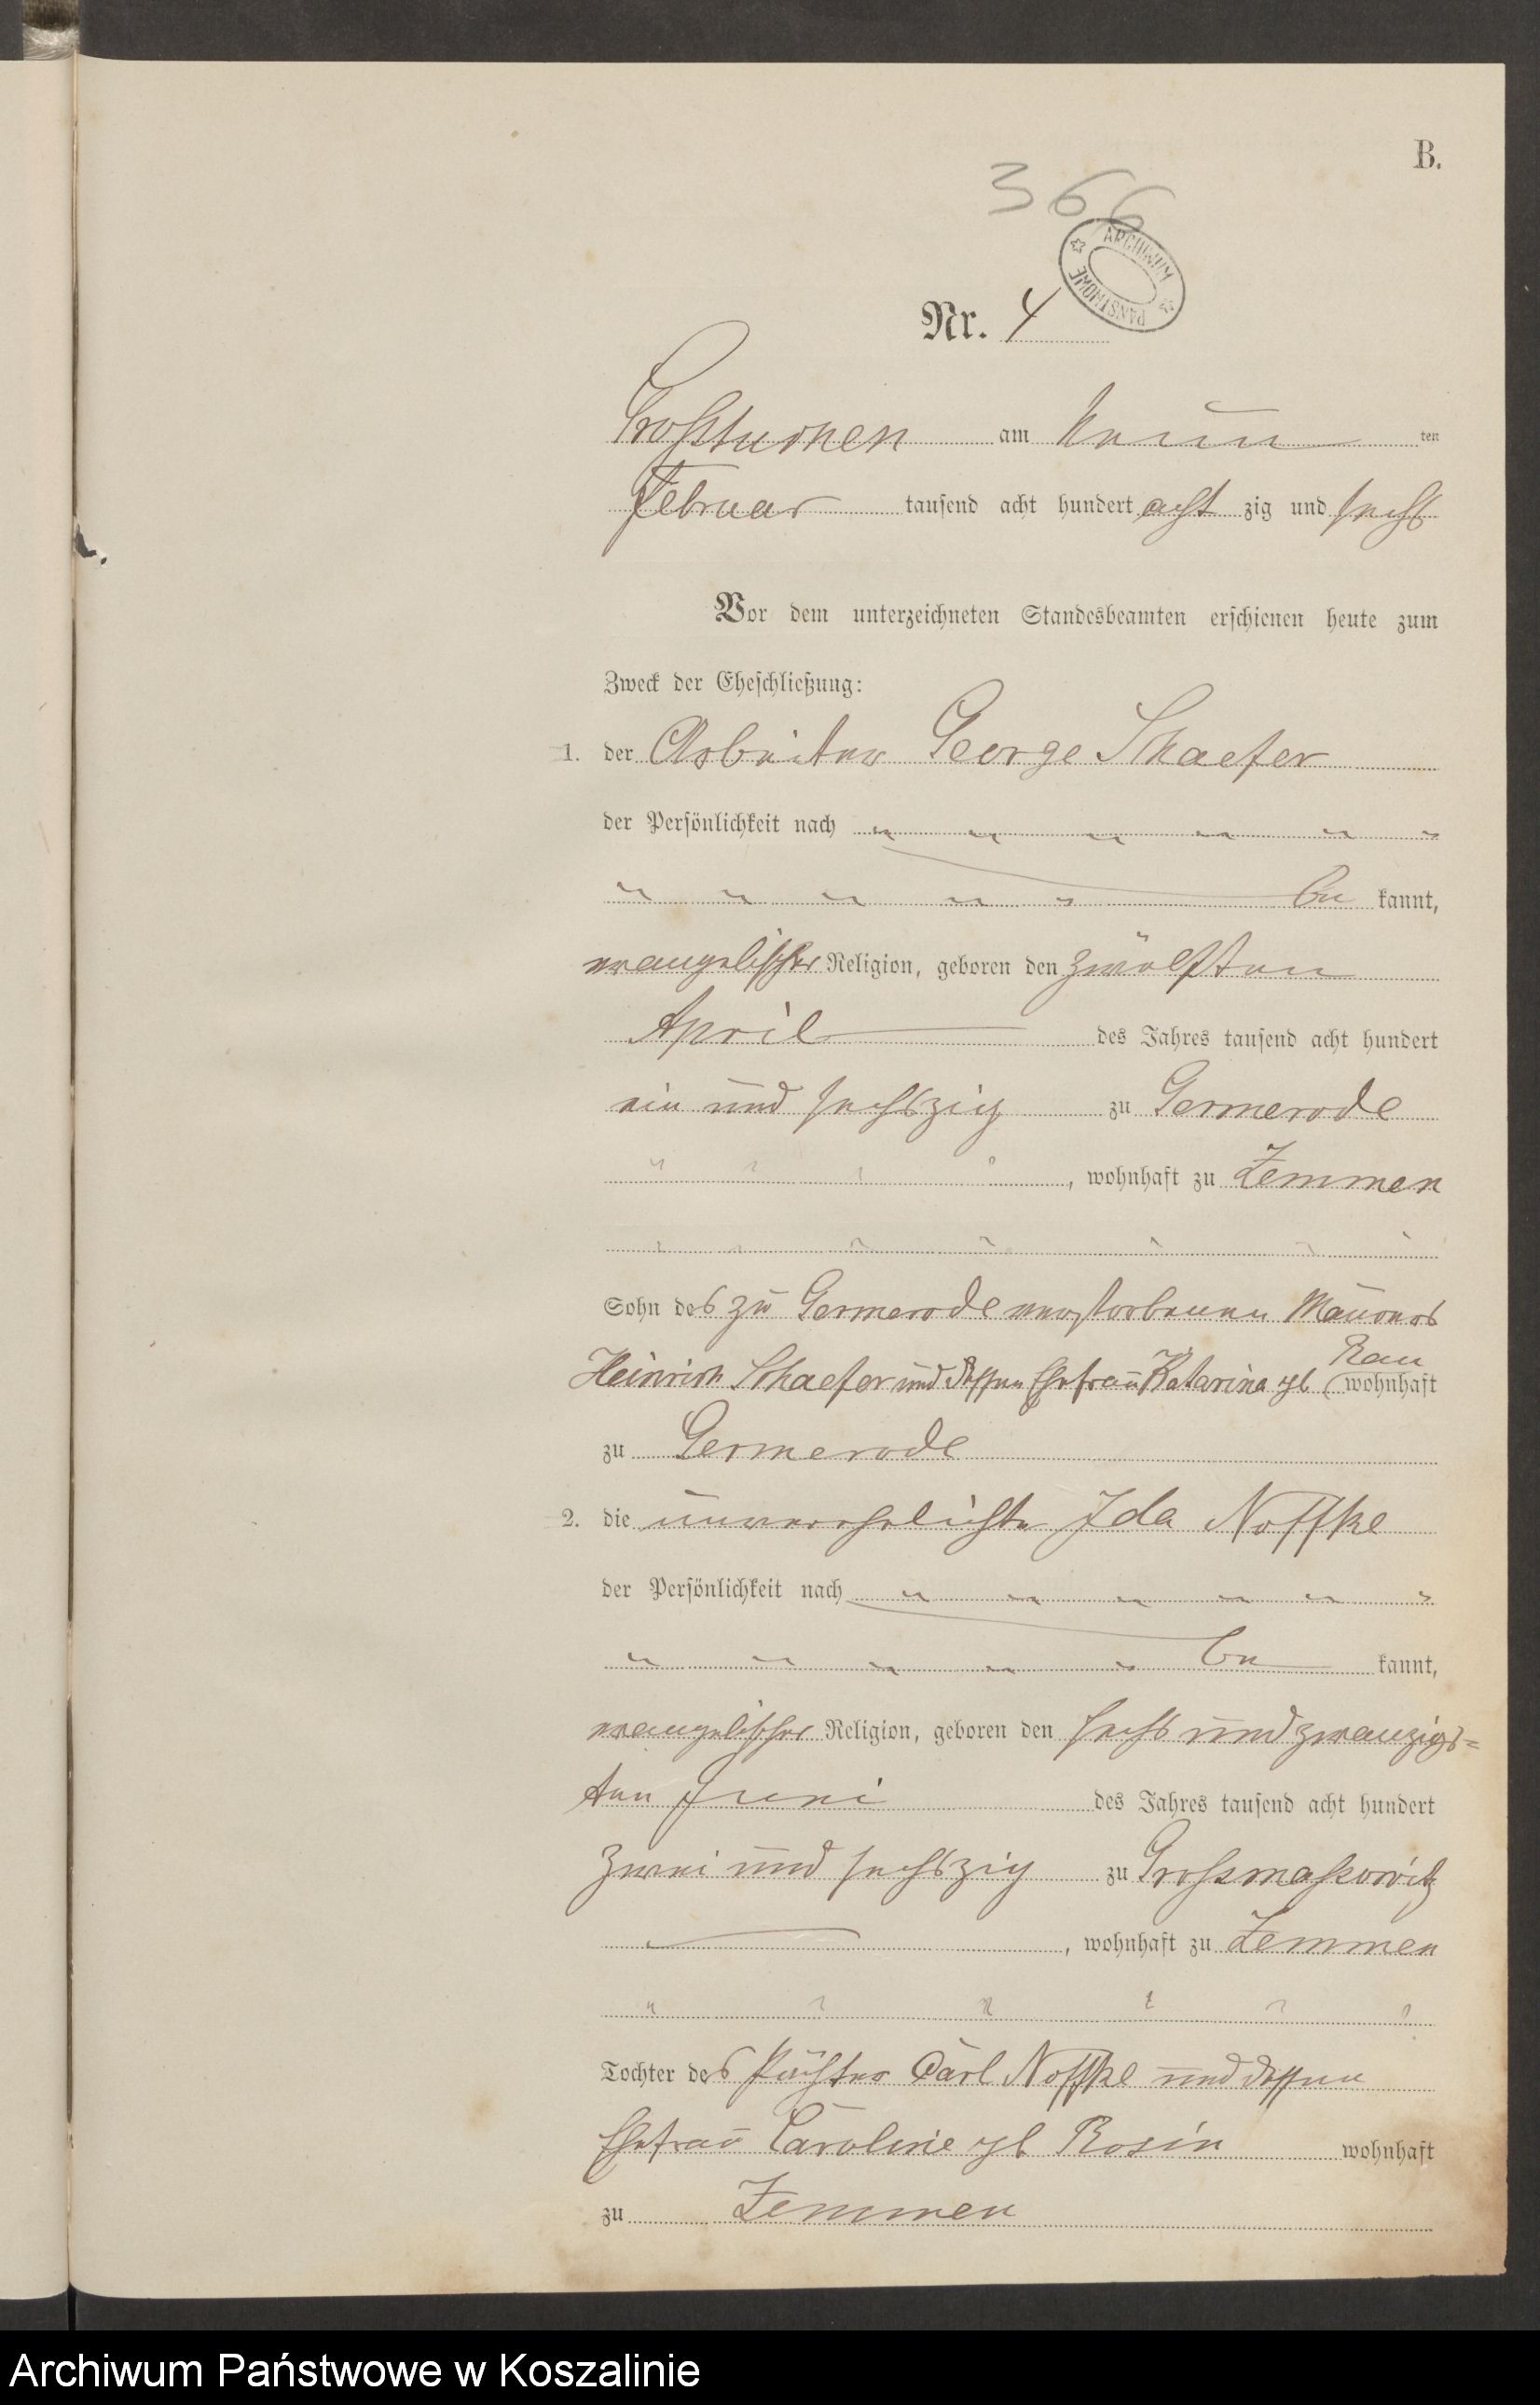 B.
366
ARCHIWUM PAŃSTWOWE
Nr. 4
Grosstuchen am neun ten
Februar tausend acht hundert acht zig und sechs
Vor dem unterzeichneten Standesbeamten erschienen heute zum
Zweck der Eheschließung:
1. der Arbeiter George Schaefer
der Persönlichkeit nach
be kannt,
evangelischer Religion, geboren den zwölften
April des Jahres tausend acht hundert
ein und sechszig zu Germerode
, wohnhaft zu Zemmen
Sohn des zu Germerode verstorbenen Maurers
Rau
Heinrich Schaefer und dessen Ehefrau Katarina geb ( wohnhaft
zu Germerode
2. die unverehelichte Ida Noffke
der Persönlichkeit nach
be kannt,
evangelischer Religion, geboren den sechs und zwanzigs=
ten Juni des Jahres tausend acht hundert
zwei und sechszig zu Grossmassowitz
, wohnhaft zu Zemmen
Tochter des Pächter Carl Noffke und dessen
Ehefrau Caroline geb Rosin wohnhaft
zu Zemmen
Archiwum Państwowe w Koszalinie